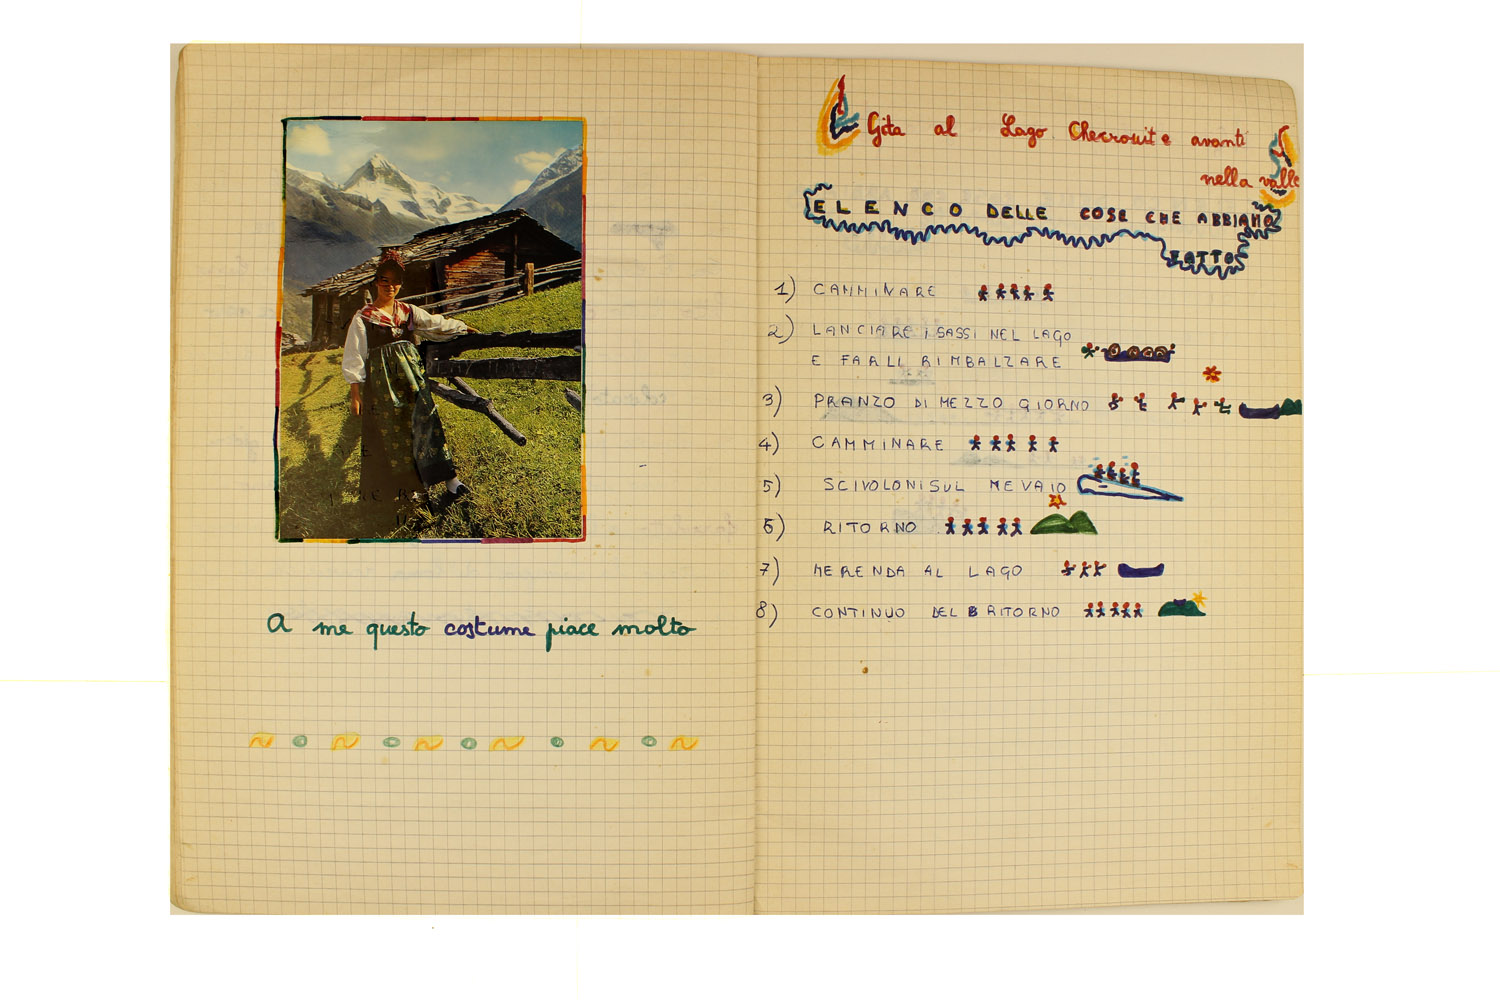 A me questo costume piace molto
Gita al Lago Checrouit e avanti
nella valle
ELENCO DELLE COSE CHE ABBIAMO
FATTO
1) CAMMINARE
2) LANCIARE I SASSI NEL LAGO
E FARLI RIMBALZARE
3) PRANZO DI MEZZO GIORNO
4) CAMMINARE
5) SCIVOLONI SUL NEVAIO
6) RITORNO
7) MERENDA AL LAGO
8) CONTINUO DEL RITORNO